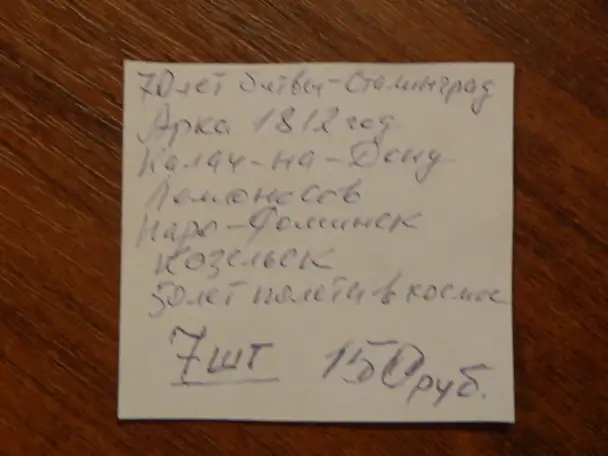 70 лет битвы-Сталинград
Арка 1812 год
Калач-на-Дону
Ломоносов
Наро-Фоминск
Козельск
50 лет полета в космос
7 шт 150 руб.